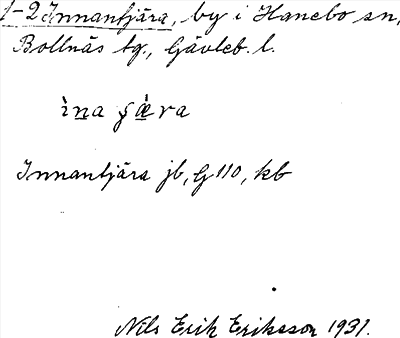 1-2 Innantjära, by i Hanebo sn,
Bollnäs tg., Gävleb. l.
ìna ʂæ̀ra
Innantjära jb, G 110, kb
Nils Erik Eriksson 1931.